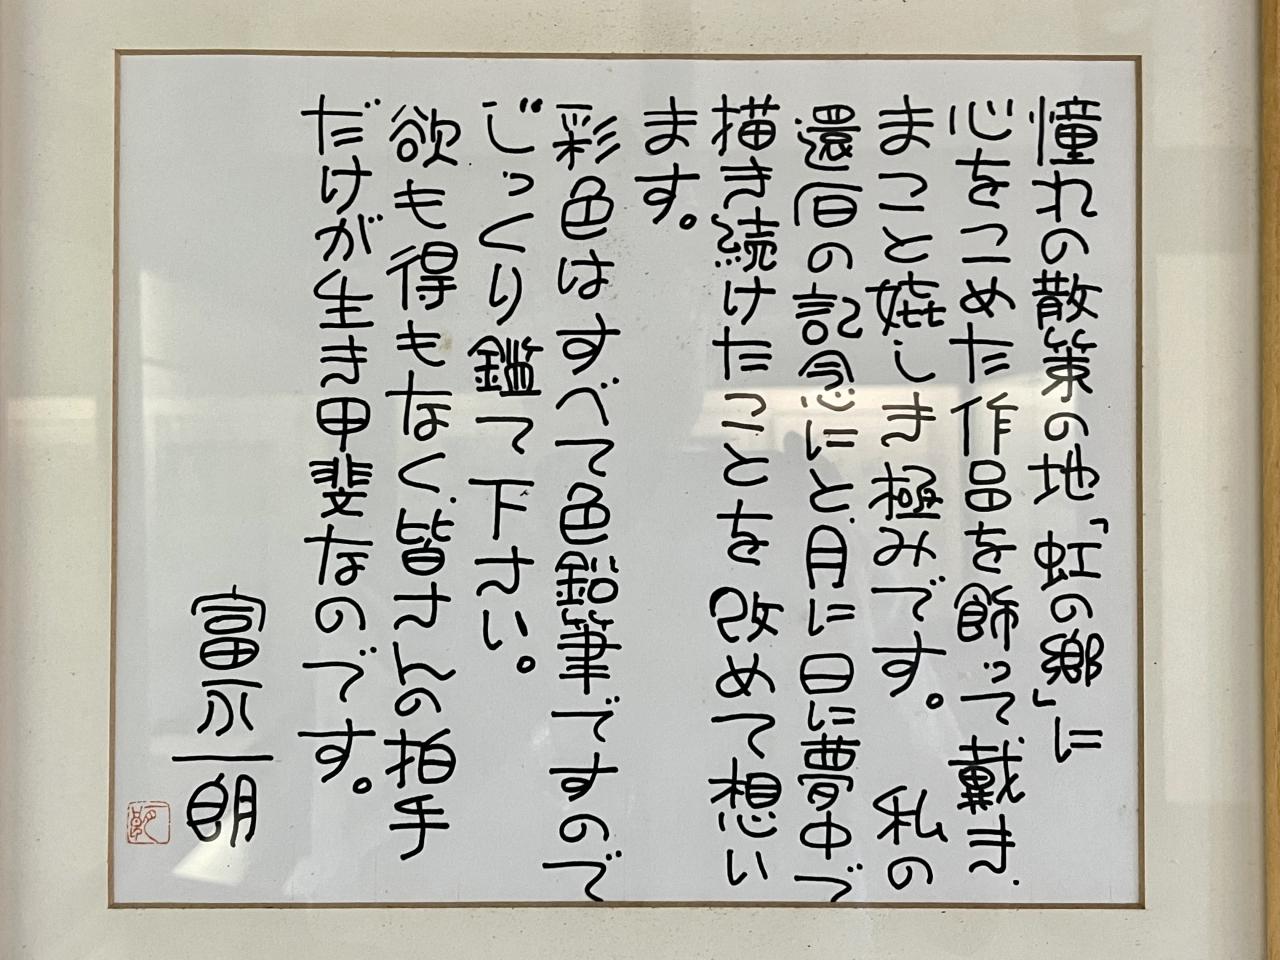 憧れの散策の地「虹の郷」に
心をこめた作品を飾って、戴き、
まこと嬉しき極みです。 私の
還暦の記念にと、月に日に夢中で
描き続けたことを改めて想い
ます。
彩色はすべて色鉛筆ですので
じっくり鑑て下さい。
欲も得もなく、皆さんの拍手
だけが生き甲斐なのです。
富永一朗